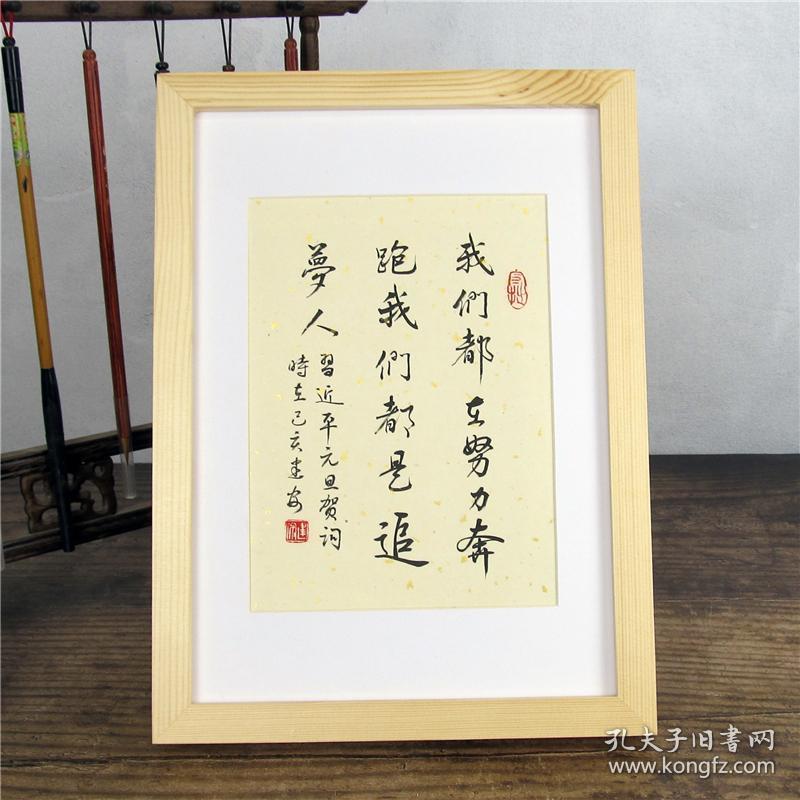 我們都在努力奔
跑我們都是追
夢人
習近平元旦贺词
時在己亥建安
孔夫子旧書网
www.kongfz.com